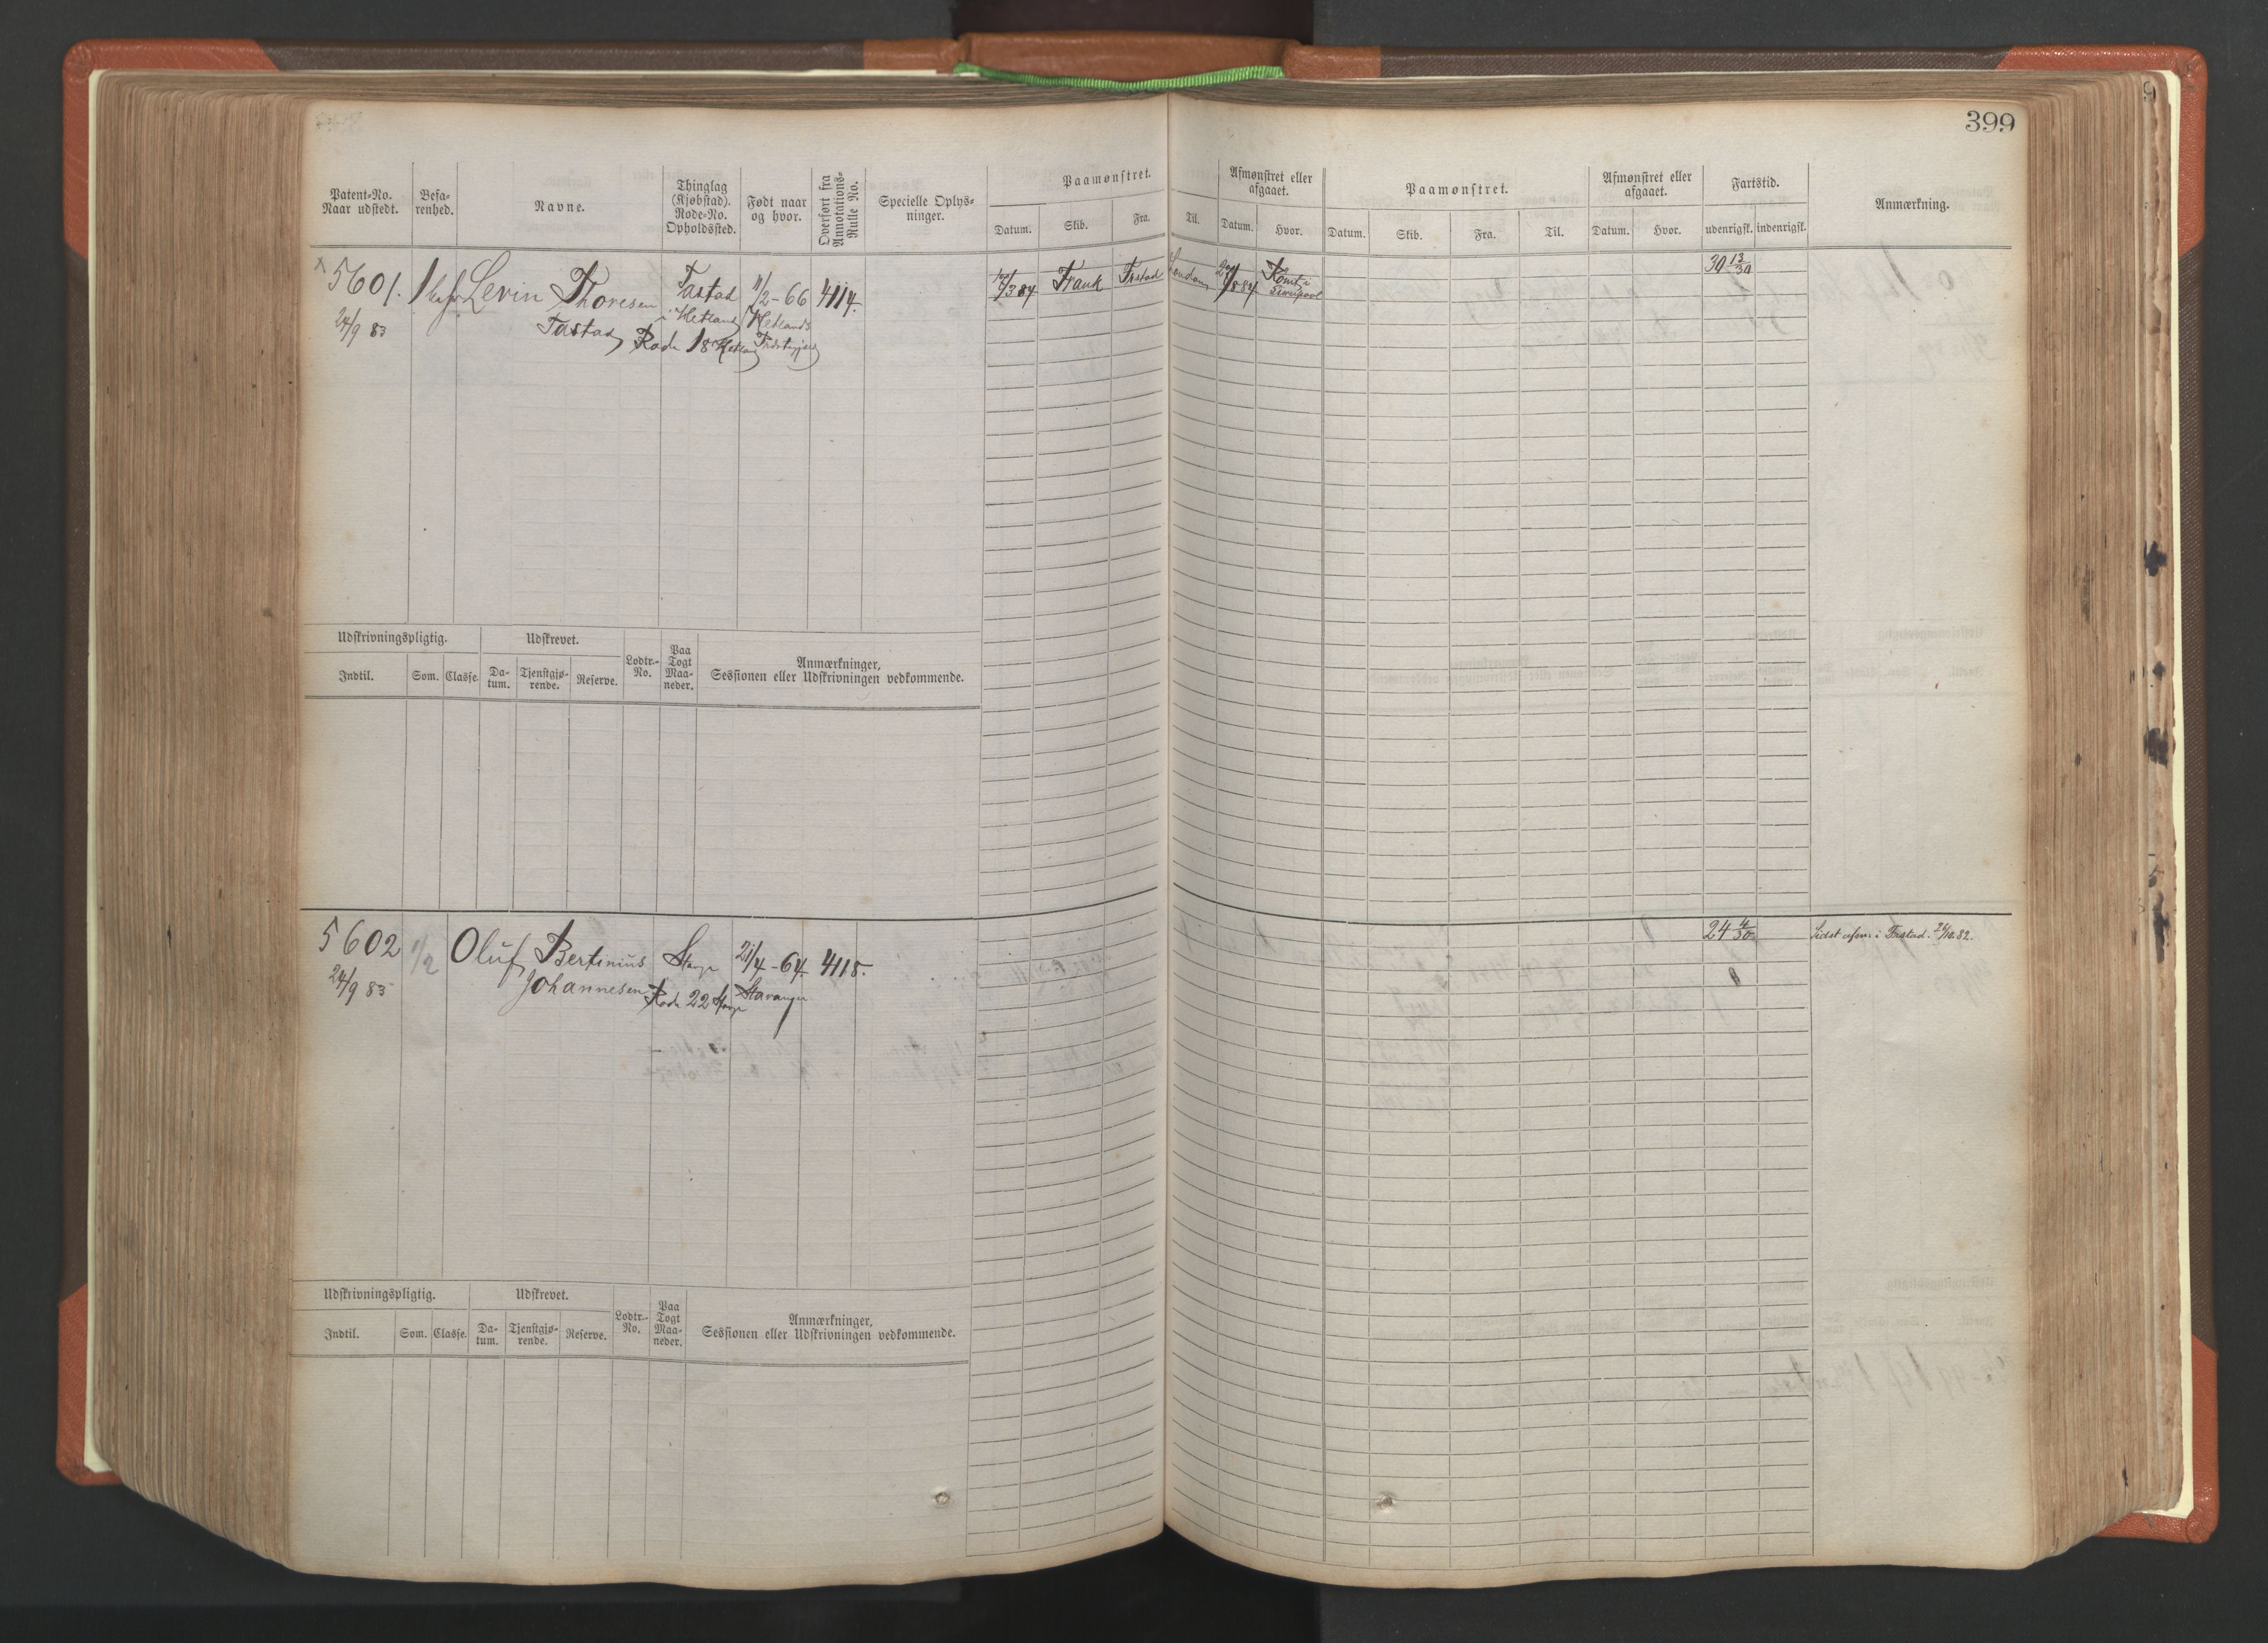 399
Patent-No. Naar udstedt. Befarenhed. Navne. Thinglag (Kjøbstad). Rode-No. Opholdssted. Født naar og hvor. Overført fra Annotations-Rulle No. Specielle Oplysninger. Paamønstret. Afmønstret eller afgaaet. Paamønstret. Afmønstret eller afgaaet. Fartstid. Anmærkning.
Datum. Skib. Fra. Til. Datum. Hvor. Datum. Skib. Fra. Til. Datum. Hvor. udenrigsk. indenrigsk.
5601. 1 Levin Thoresen Tastad 11/2-66 4114. Frank Frstad London 30 13/30
24/9 83 Tastad Rode 18 Hetland Hetlands
Udskrivningspligtig. Udskrevet. Lodtr.-No. Paa Togt Maaneder. Anmærkninger, Sessionen eller Udskrivningen vedkommende.
Indtil. Søm. Classe. Datum. Tjenstgjørende. Reserve.
5602 1/2 Oluf Bertinius Stavgr 21/4-64. 4115. 24 4/30 Sidst afm. i Frstad. 26/10.82.
24/9 83 Johannesen Rode 22 Stavgr Stavanger
Udskrivningspligtig. Udskrevet. Lodtr.-No. Paa Togt Maaneder. Anmærkninger, Sessionen eller Udskrivningen vedkommende.
Indtil. Søm. Classe. Datum. Tjenstgjørende. Reserve.